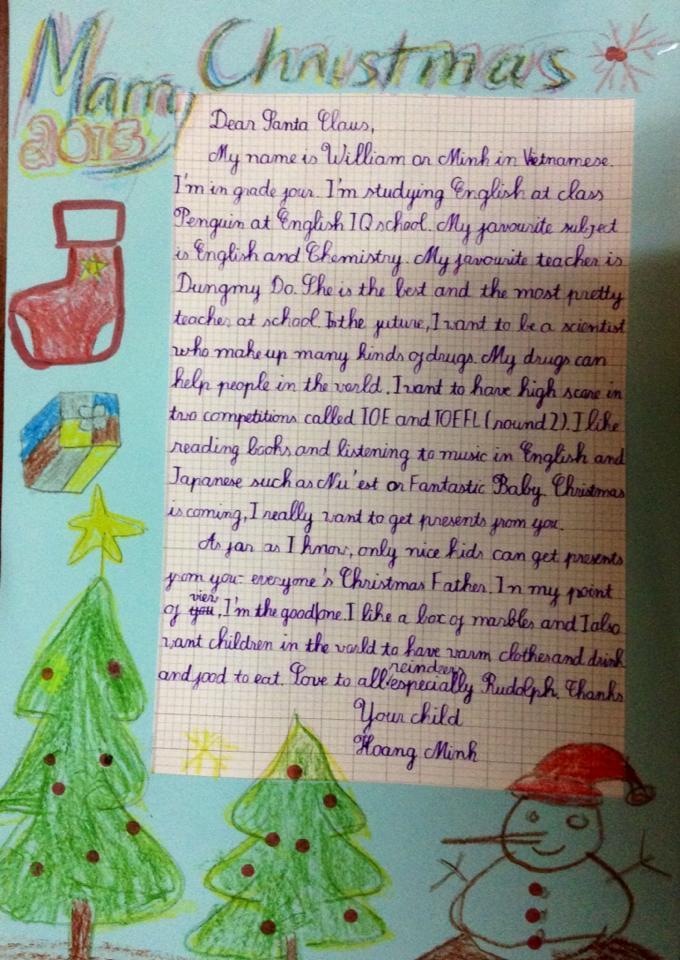 Marry Christmas
2013
Dear Santa Claus,
My name is William or Minh in Vietnamese.
I'm in grade four. I'm studying English at class
Penguin at English IQ school. My favourite subject
is English and Chemistry. My favourite teacher is
Dungmy Do. She is the best and the most pretty
teacher at school. In the future, I want to be a scientist
who make up many kinds of drugs. My drugs can
help people in the world. I want to have high score in
two competitions called IOE and TOEFL (round 2). I like
reading books and listening to music in English and
Japanese such as Nu'est or Fantastic Baby. Christmas
is coming, I really want to get presents from you.
As far as I know, only nice kids can get presents
from you - everyone's Christmas Father. In my point
of you view, I'm the good one. I like a box of marbles and I also
want children in the world to have warm clothes and drink
and food to eat. Love to all reindeers especially Rudolph. Thanks
Your child
Hoang Minh